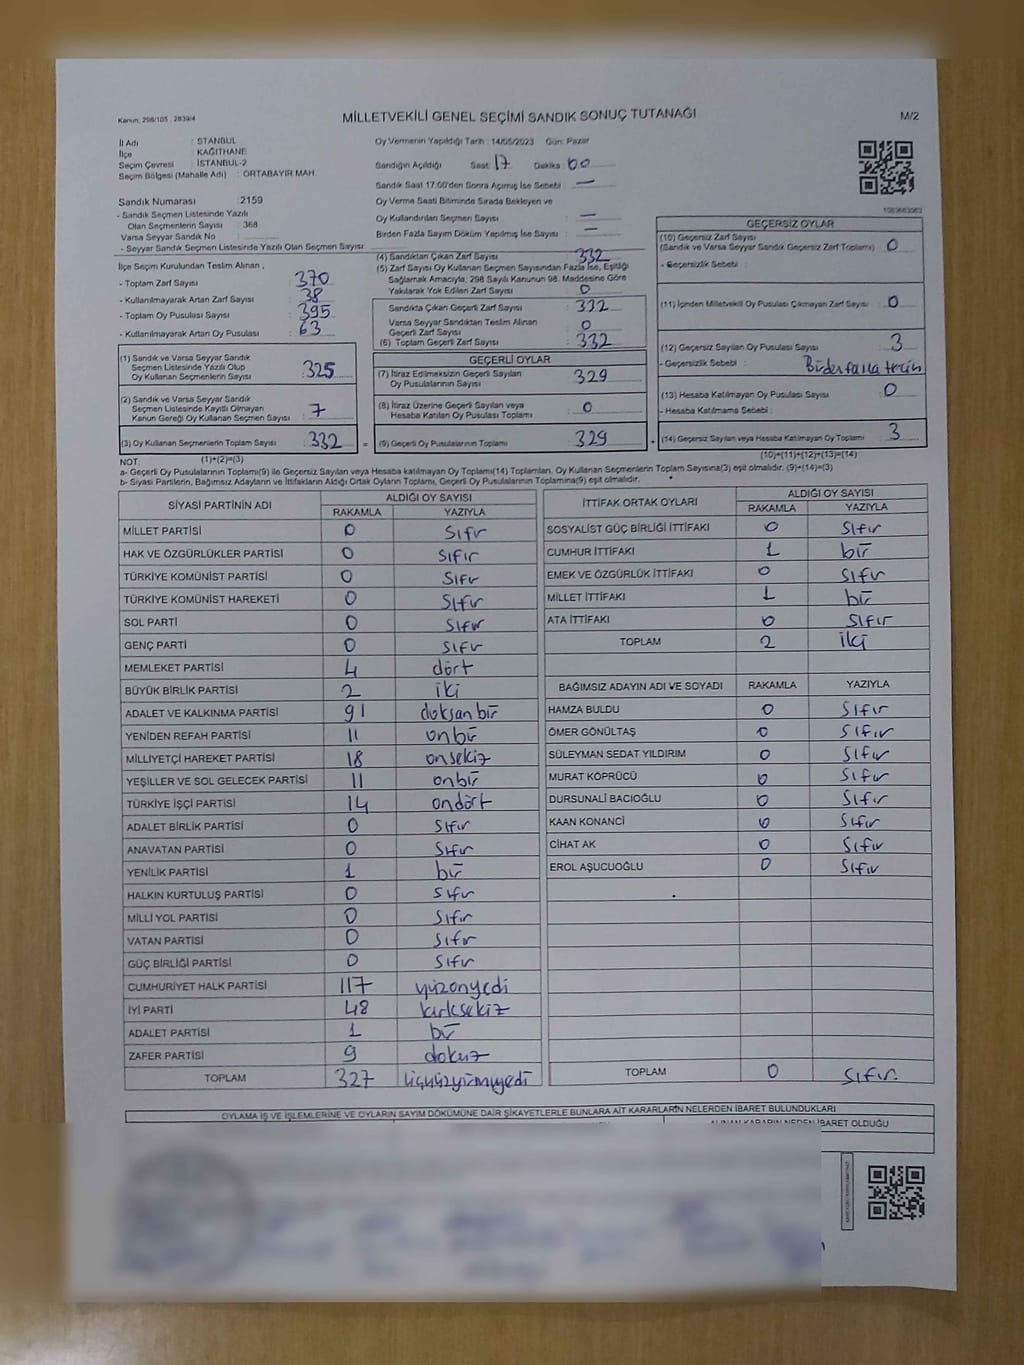 Kanun: 298/105 , 2839/4
MİLLETVEKİLİ GENEL SEÇİMİ SANDIK SONUÇ TUTANAĞI
M/2
İl Adı : STANBUL
İlçe : KAĞITHANE
Seçim Çevresi : İSTANBUL-2
Seçim Bölgesi (Mahalle Adı) : ORTABAYIR MAH.
Sandık Numarası : 2159
- Sandık Seçmen Listesinde Yazılı
Olan Seçmenlerin Sayısı : 368
Varsa Seyyar Sandık No :
- Seyyar Sandık Seçmen Listesinde Yazılı Olan Seçmen Sayısı:
Oy Vermenin Yapıldığı Tarih : 14/05/2023 Gün: Pazar
Sandığın Açıldığı Saat: 17 Dakika: 00
Sandık Saat 17:00'den Sonra Açımış İse Sebebi : —
Oy Verme Saati Bitiminde Sırada Bekleyen ve
Oy Kullandırılan Seçmen Sayısı : —
Birden Fazla Sayım Döküm Yapılmış İse Sayısı : —
1083663063
İlçe Seçim Kurulundan Teslim Alınan ;
- Toplam Zarf Sayısı : 370
- Kullanılmayarak Artan Zarf Sayısı : 38
- Toplam Oy Pusulası Sayısı : 395
- Kullanılmayarak Artan Oy Pusulası : 63
(1) Sandık ve Varsa Seyyar Sandık
Seçmen Listesinde Yazılı Olup
Oy Kullanan Seçmenlerin Sayısı : 325
(2) Sandık ve Varsa Seyyar Sandık
Seçmen Listesinde Kayıtlı Olmayan
Kanun Gereği Oy Kullanan Seçmen Sayısı : 7
(3) Oy Kullanan Seçmenlerin Toplam Sayısı : 332 =
(1)+(2)=(3)
(4) Sandıktan Çıkan Zarf Sayısı : 332
(5) Zarf Sayısı Oy Kullanan Seçmen Sayısından Fazla İse, Eşitliği
Sağlamak Amacıyla; 298 Sayılı Kanunun 98. Maddesine Göre
Yakılarak Yok Edilen Zarf Sayısı : 0
Sandıkta Çıkan Geçerli Zarf Sayısı : 332
Varsa Seyyar Sandıktan Teslim Alınan
Geçerli Zarf Sayısı : 0
(6) Toplam Geçerli Zarf Sayısı : 332
GEÇERLİ OYLAR
(7) İtiraz Edilmeksizin Geçerli Sayılan
Oy Pusulalarının Sayısı : 329
(8) İtiraz Üzerine Geçerli Sayılan veya
Hesaba Katılan Oy Pusulası Toplamı : 0
(9) Geçerli Oy Pusulalarının Toplamı : 329 +
GEÇERSİZ OYLAR
(10) Geçersiz Zarf Sayısı
(Sandık ve Varsa Seyyar Sandık Geçersiz Zarf Toplamı) : 0
- Geçersizlik Sebebi :
(11) İçinden Milletvekili Oy Pusulası Çıkmayan Zarf Sayısı : 0
(12) Geçersiz Sayılan Oy Pusulası Sayısı : 3
- Geçersizlik Sebebi : Birden fazla tercih
(13) Hesaba Katılmayan Oy Pusulası Sayısı : 0
- Hesaba Katılmama Sebebi :
(14) Geçersiz Sayılan veya Hesaba Katılmayan Oy Toplamı : 3
(10)+(11)+(12)+(13)=(14)
NOT:
a- Geçerli Oy Pusulalarının Toplamı(9) ile Geçersiz Sayılan veya Hesaba katılmayan Oy Toplamı(14) Toplamları, Oy Kullanan Seçmenlerin Toplam Sayısına(3) eşit olmalıdır. (9)+(14)=(3)
b- Siyasi Partilerin, Bağımsız Adayların ve İttifakların Aldığı Ortak Oyların Toplamı, Geçerli Oy Pusulalarının Toplamına(9) eşit olmalıdır.
SİYASİ PARTİNİN ADI ALDIĞI OY SAYISI
RAKAMLA YAZIYLA
MİLLET PARTİSİ 0 Sıfır
HAK VE ÖZGÜRLÜKLER PARTİSİ 0 Sıfır
TÜRKİYE KOMÜNİST PARTİSİ 0 Sıfır
TÜRKİYE KOMÜNİST HAREKETİ 0 Sıfır
SOL PARTİ 0 Sıfır
GENÇ PARTİ 0 Sıfır
MEMLEKET PARTİSİ 4 dört
BÜYÜK BİRLİK PARTİSİ 2 iki
ADALET VE KALKINMA PARTİSİ 91 doksan bir
YENİDEN REFAH PARTİSİ 11 onbir
MİLLİYETÇİ HAREKET PARTİSİ 18 onsekiz
YEŞİLLER VE SOL GELECEK PARTİSİ 11 onbir
TÜRKİYE İŞÇİ PARTİSİ 14 ondört
ADALET BİRLİK PARTİSİ 0 Sıfır
ANAVATAN PARTİSİ 0 Sıfır
YENİLİK PARTİSİ 1 bir
HALKIN KURTULUŞ PARTİSİ 0 Sıfır
MİLLİ YOL PARTİSİ 0 Sıfır
VATAN PARTİSİ 0 Sıfır
GÜÇ BİRLİĞİ PARTİSİ 0 Sıfır
CUMHURİYET HALK PARTİSİ 117 yüzonyedi
İYİ PARTİ 48 kırksekiz
ADALET PARTİSİ 1 bir
ZAFER PARTİSİ 9 dokuz
TOPLAM 327 üçyüzyirmiyedi
İTTİFAK ORTAK OYLARI ALDIĞI OY SAYISI
RAKAMLA YAZIYLA
SOSYALİST GÜÇ BİRLİĞİ İTTİFAKI 0 Sıfır
CUMHUR İTTİFAKI 1 bir
EMEK VE ÖZGÜRLÜK İTTİFAKI 0 Sıfır
MİLLET İTTİFAKI 1 bir
ATA İTTİFAKI 0 Sıfır
TOPLAM 2 iki
BAĞIMSIZ ADAYIN ADI VE SOYADI RAKAMLA YAZIYLA
HAMZA BULDU 0 Sıfır
ÖMER GÖNÜLTAŞ 0 Sıfır
SÜLEYMAN SEDAT YILDIRIM 0 Sıfır
MURAT KÖPRÜCÜ 0 Sıfır
DURSUNALİ BACIOĞLU 0 Sıfır
KAAN KONANCİ 0 Sıfır
CİHAT AK 0 Sıfır
EROL AŞUCUOĞLU 0 Sıfır
TOPLAM 0 Sıfır.
OYLAMA İŞ VE İŞLEMLERİNE VE OYLARIN SAYIM DÖKÜMÜNE DAİR ŞİKAYETLERLE BUNLARA AİT KARARLARIN NELERDEN İBARET BULUNDUKLARI
ALINAN KARARIN NEDEN İBARET OLDUĞU